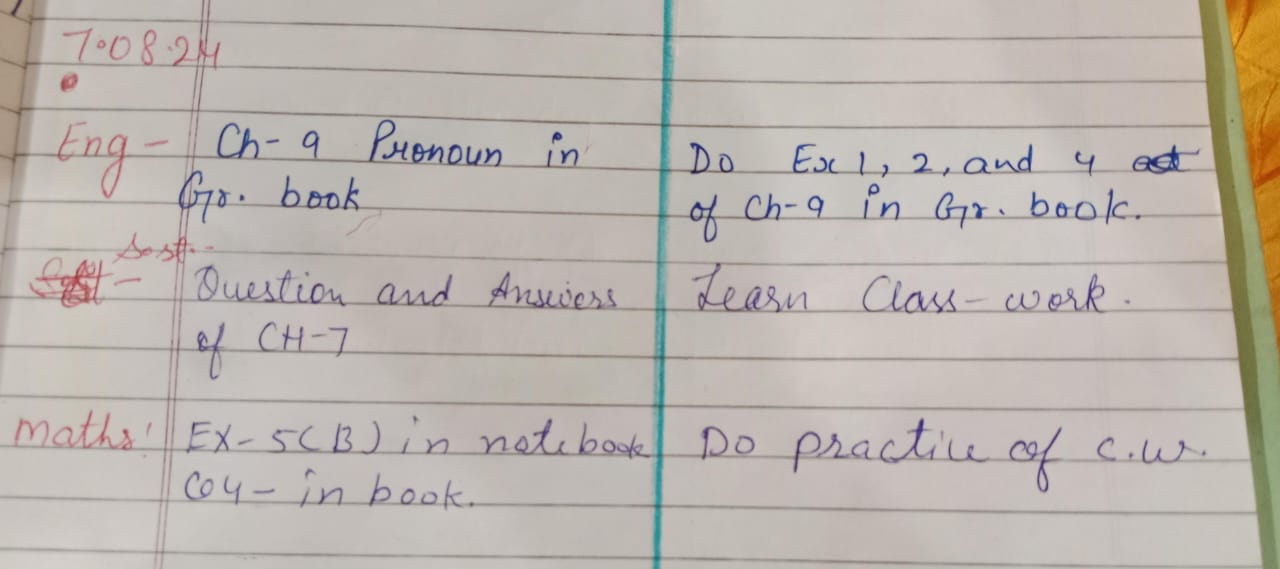 7.08.24
Eng - Ch-9 Pronoun in
Gr. book
Do Ex 1, 2, and 4
of Ch-9 in Gr. book.
S.st. - Question and Answers
of CH-7
Learn Class-work.
Maths: EX-5(B) in notebook
in book.
Do practice of C.W.